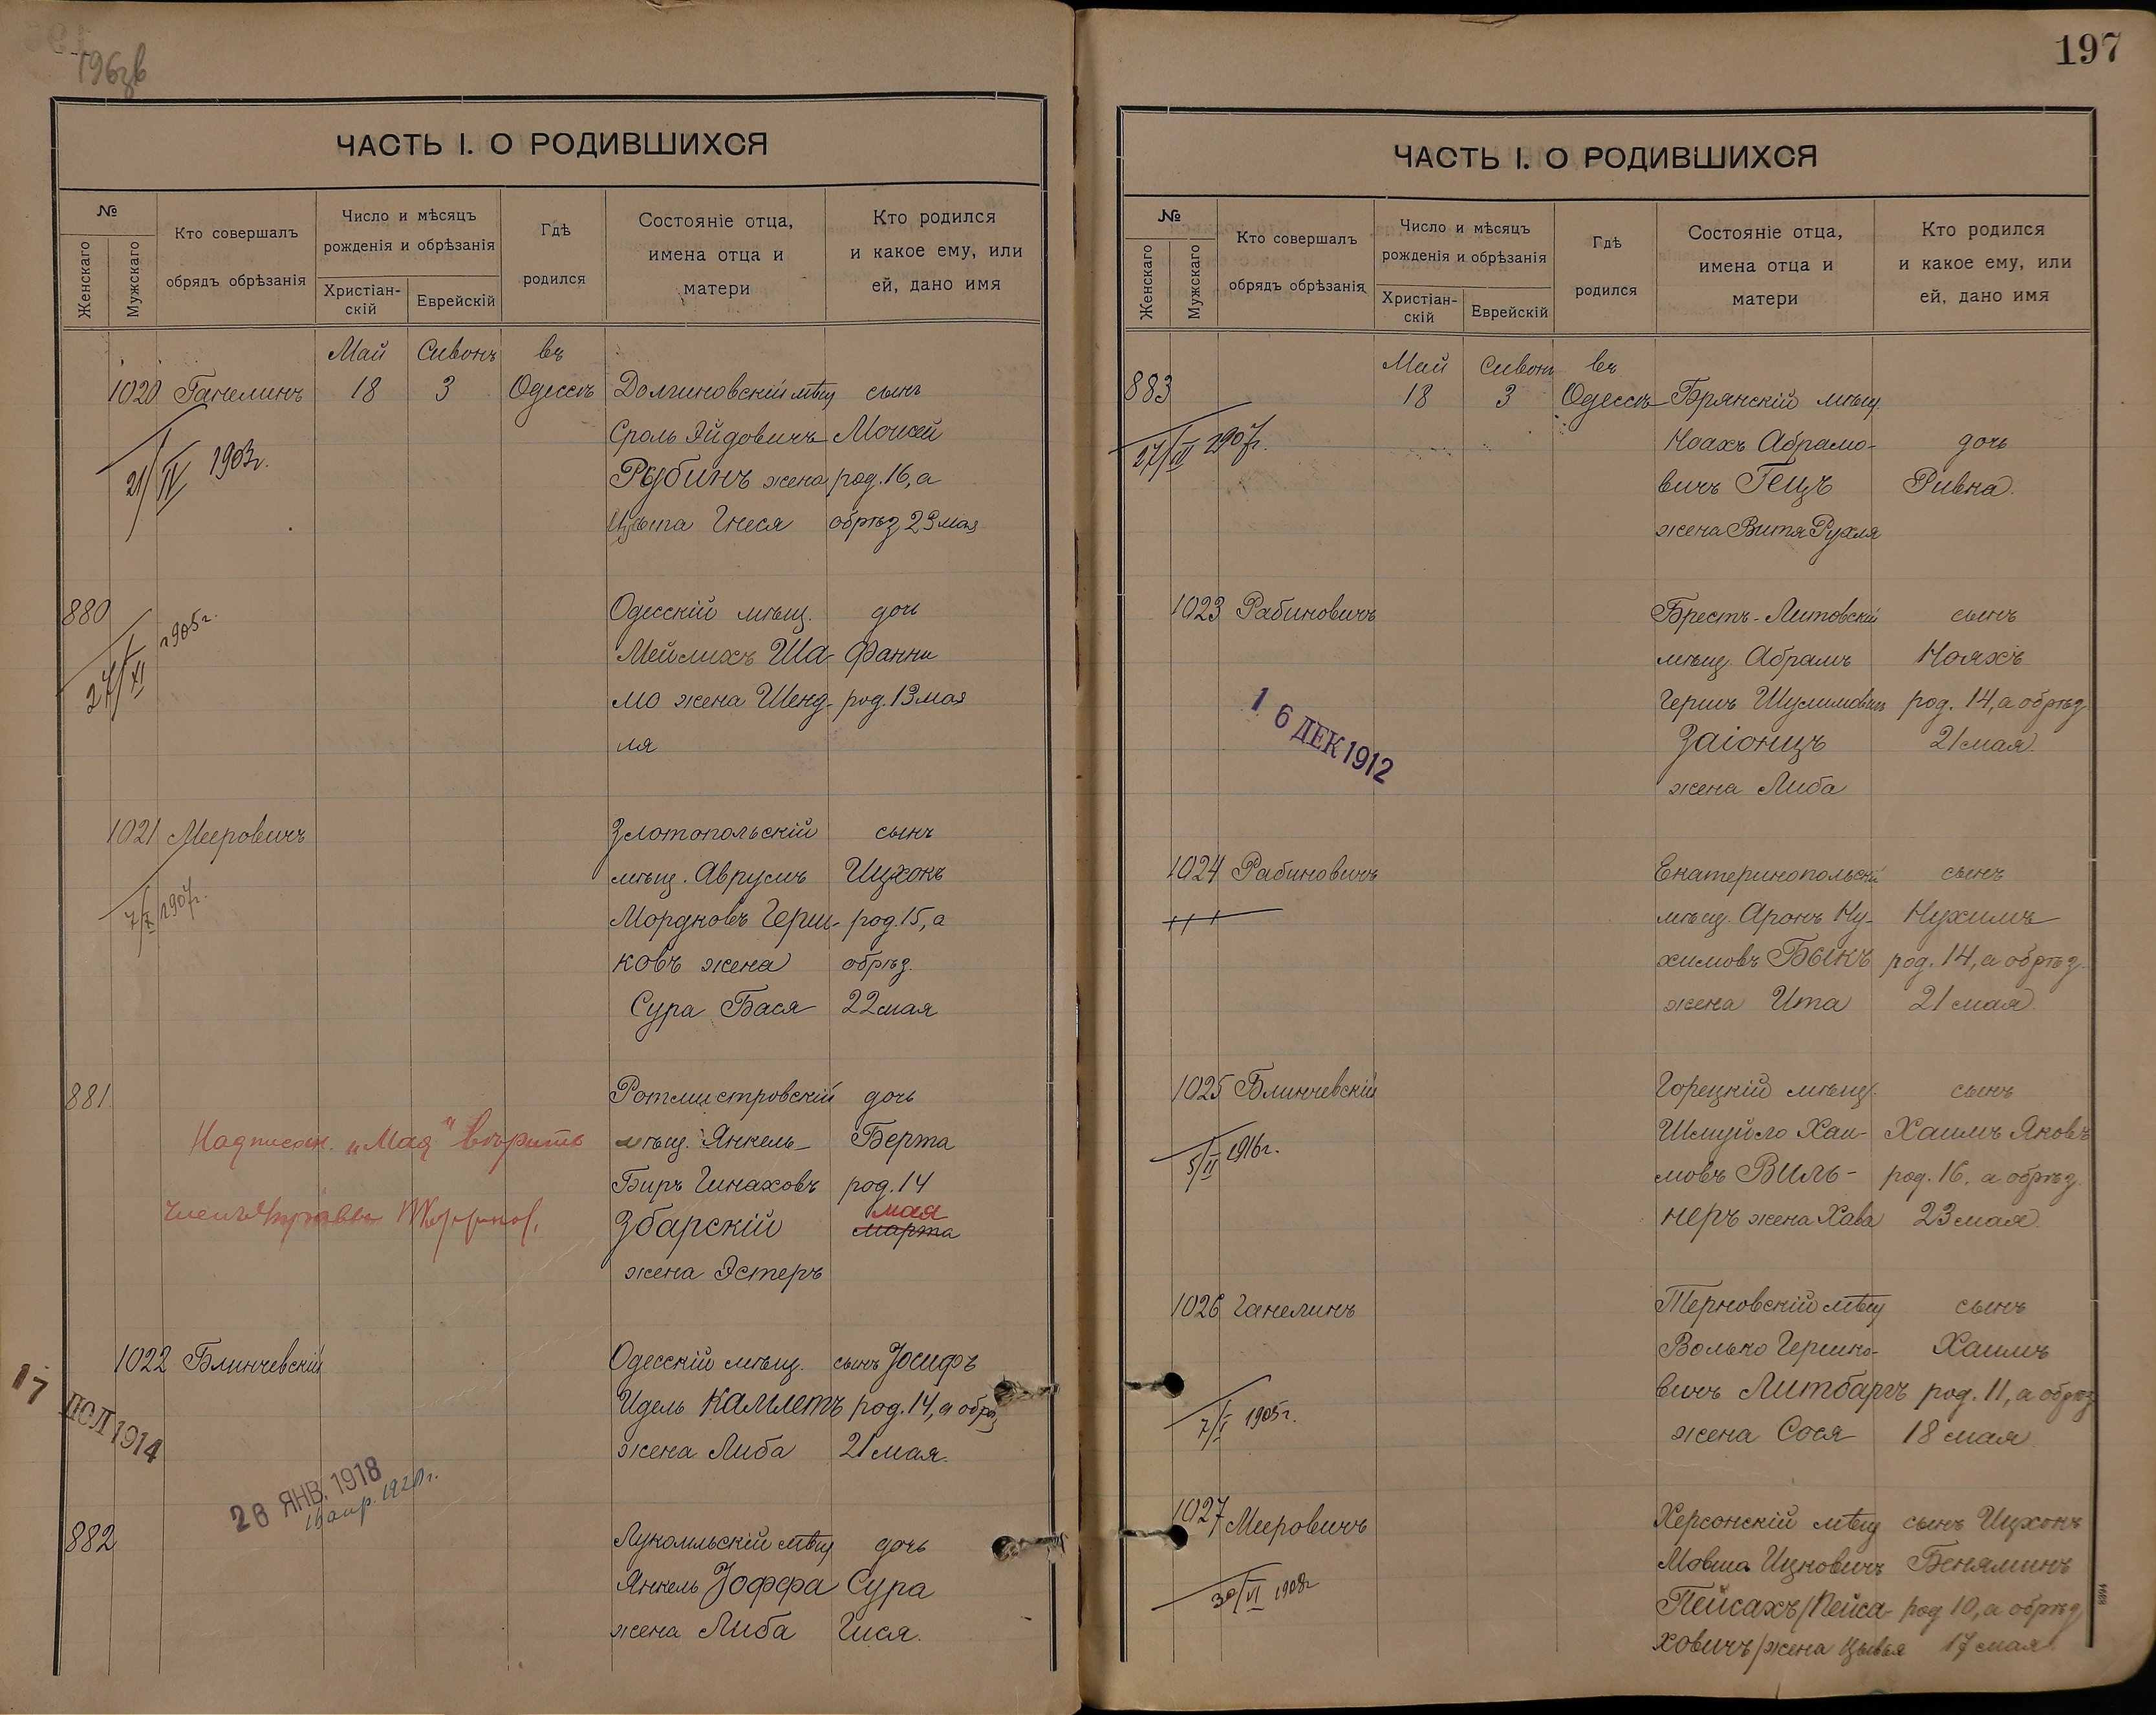 196зв
ЧАСТЬ I. О РОДИВШИХСЯ
№
Женскаго
Мужскаго
Кто совершалъ
обрядъ обрѣзанія
Число и мѣсяцъ
рожденія и обрѣзанія
Христіан-
скій
Еврейскій
Гдѣ
родился
Состояніе отца,
имена отца и
матери
Кто родился
и какое ему, или
ей, дано имя
Май Сивонъ въ
1020 Ганелинъ 18 3 Одессѣ Долгиновскій мѣщ сынъ
Сроль Эйдовичъ Моисей
21/IV 1903г.
Рубинъ жена род. 16, а
Цывпа Гнеся обрѣз 23 мая
880 Одесскій мѣщ. дочь
27/XI 1905г.
Мейлихъ Ша- Фанни
мо жена Шенд- род. 13 мая
ля
1021 Мееровичъ Златопольскій сынъ
мѣщ. Аврумъ Ицхокъ
7/X 1907г.
Мордковъ Герш- род. 15, а
ковъ жена обрѣз.
Сура Бася 22 мая
881 Ротмистровскій дочь
Надписан. „Мая" вѣрить
мѣщ. Янкель- Берта
Биръ Гинаховъ род. 14
мая
Збарскій марта
жена Эстеръ
1022 Блинчевскій Одесскій мѣщ. сынъ Іосифъ
Идель Камлетъ род. 14, а обрѣз
17 ІЮЛ 1914
жена Либа 21 мая.
28 ЯНВ. 1918
16 апр. 1920г.
882 Лукомльскій мѣщ дочь
Янкель Іоффа Сура
жена Либа Гися.
197
ЧАСТЬ I. О РОДИВШИХСЯ
№
Женскаго
Мужскаго
Кто совершалъ
обрядъ обрѣзанія
Число и мѣсяцъ
рожденія и обрѣзанія
Христіан-
скій
Еврейскій
Гдѣ
родился
Состояніе отца,
имена отца и
матери
Кто родился
и какое ему, или
ей, дано имя
Май Сивонъ въ
883 18 3 Одессѣ Брянскій мѣщ.
27/III 1907г.
Ноахъ Абрамо- дочь
вичъ Гецъ Ривка.
жена Витя Рухля
1023 Рабиновичъ Брестъ-Литовскій сынъ
мѣщ. Абрамъ Нояхъ
Гершъ Шулимовичъ род. 14, а обрѣз
16 ДЕК 1912
Заіонцъ 21 мая.
жена Либа
1024 Рабиновичъ Екатеринопольскій сынъ
мѣщ. Аронъ Ну- Нухимъ
химовъ Быкъ род. 14, а обрѣз.
жена Ита 21 мая
1025 Блинчевскій Горецкій мѣщ. сынъ
Шмуйло Хаи- Хаимъ Яковъ
5/II 1916г.
мовъ Виль- род. 16, а обрѣз.
неръ жена Хава 23 мая.
1026 Ганелинъ Терновскій мѣщ сынъ
Волько Гершко- Хаимъ
вичъ Литбаргъ род. 11, а обрѣз
7/X 1905г.
жена Сося 18 мая
1027 Мееровичъ Херсонскій мѣщ сынъ Ицхокъ
Мовша Ицковичъ Беняминъ
30/VI 1908г
Пейсахъ/Пейса- род 10, а обрѣз
ховичъ/жена Цывья 17 мая.